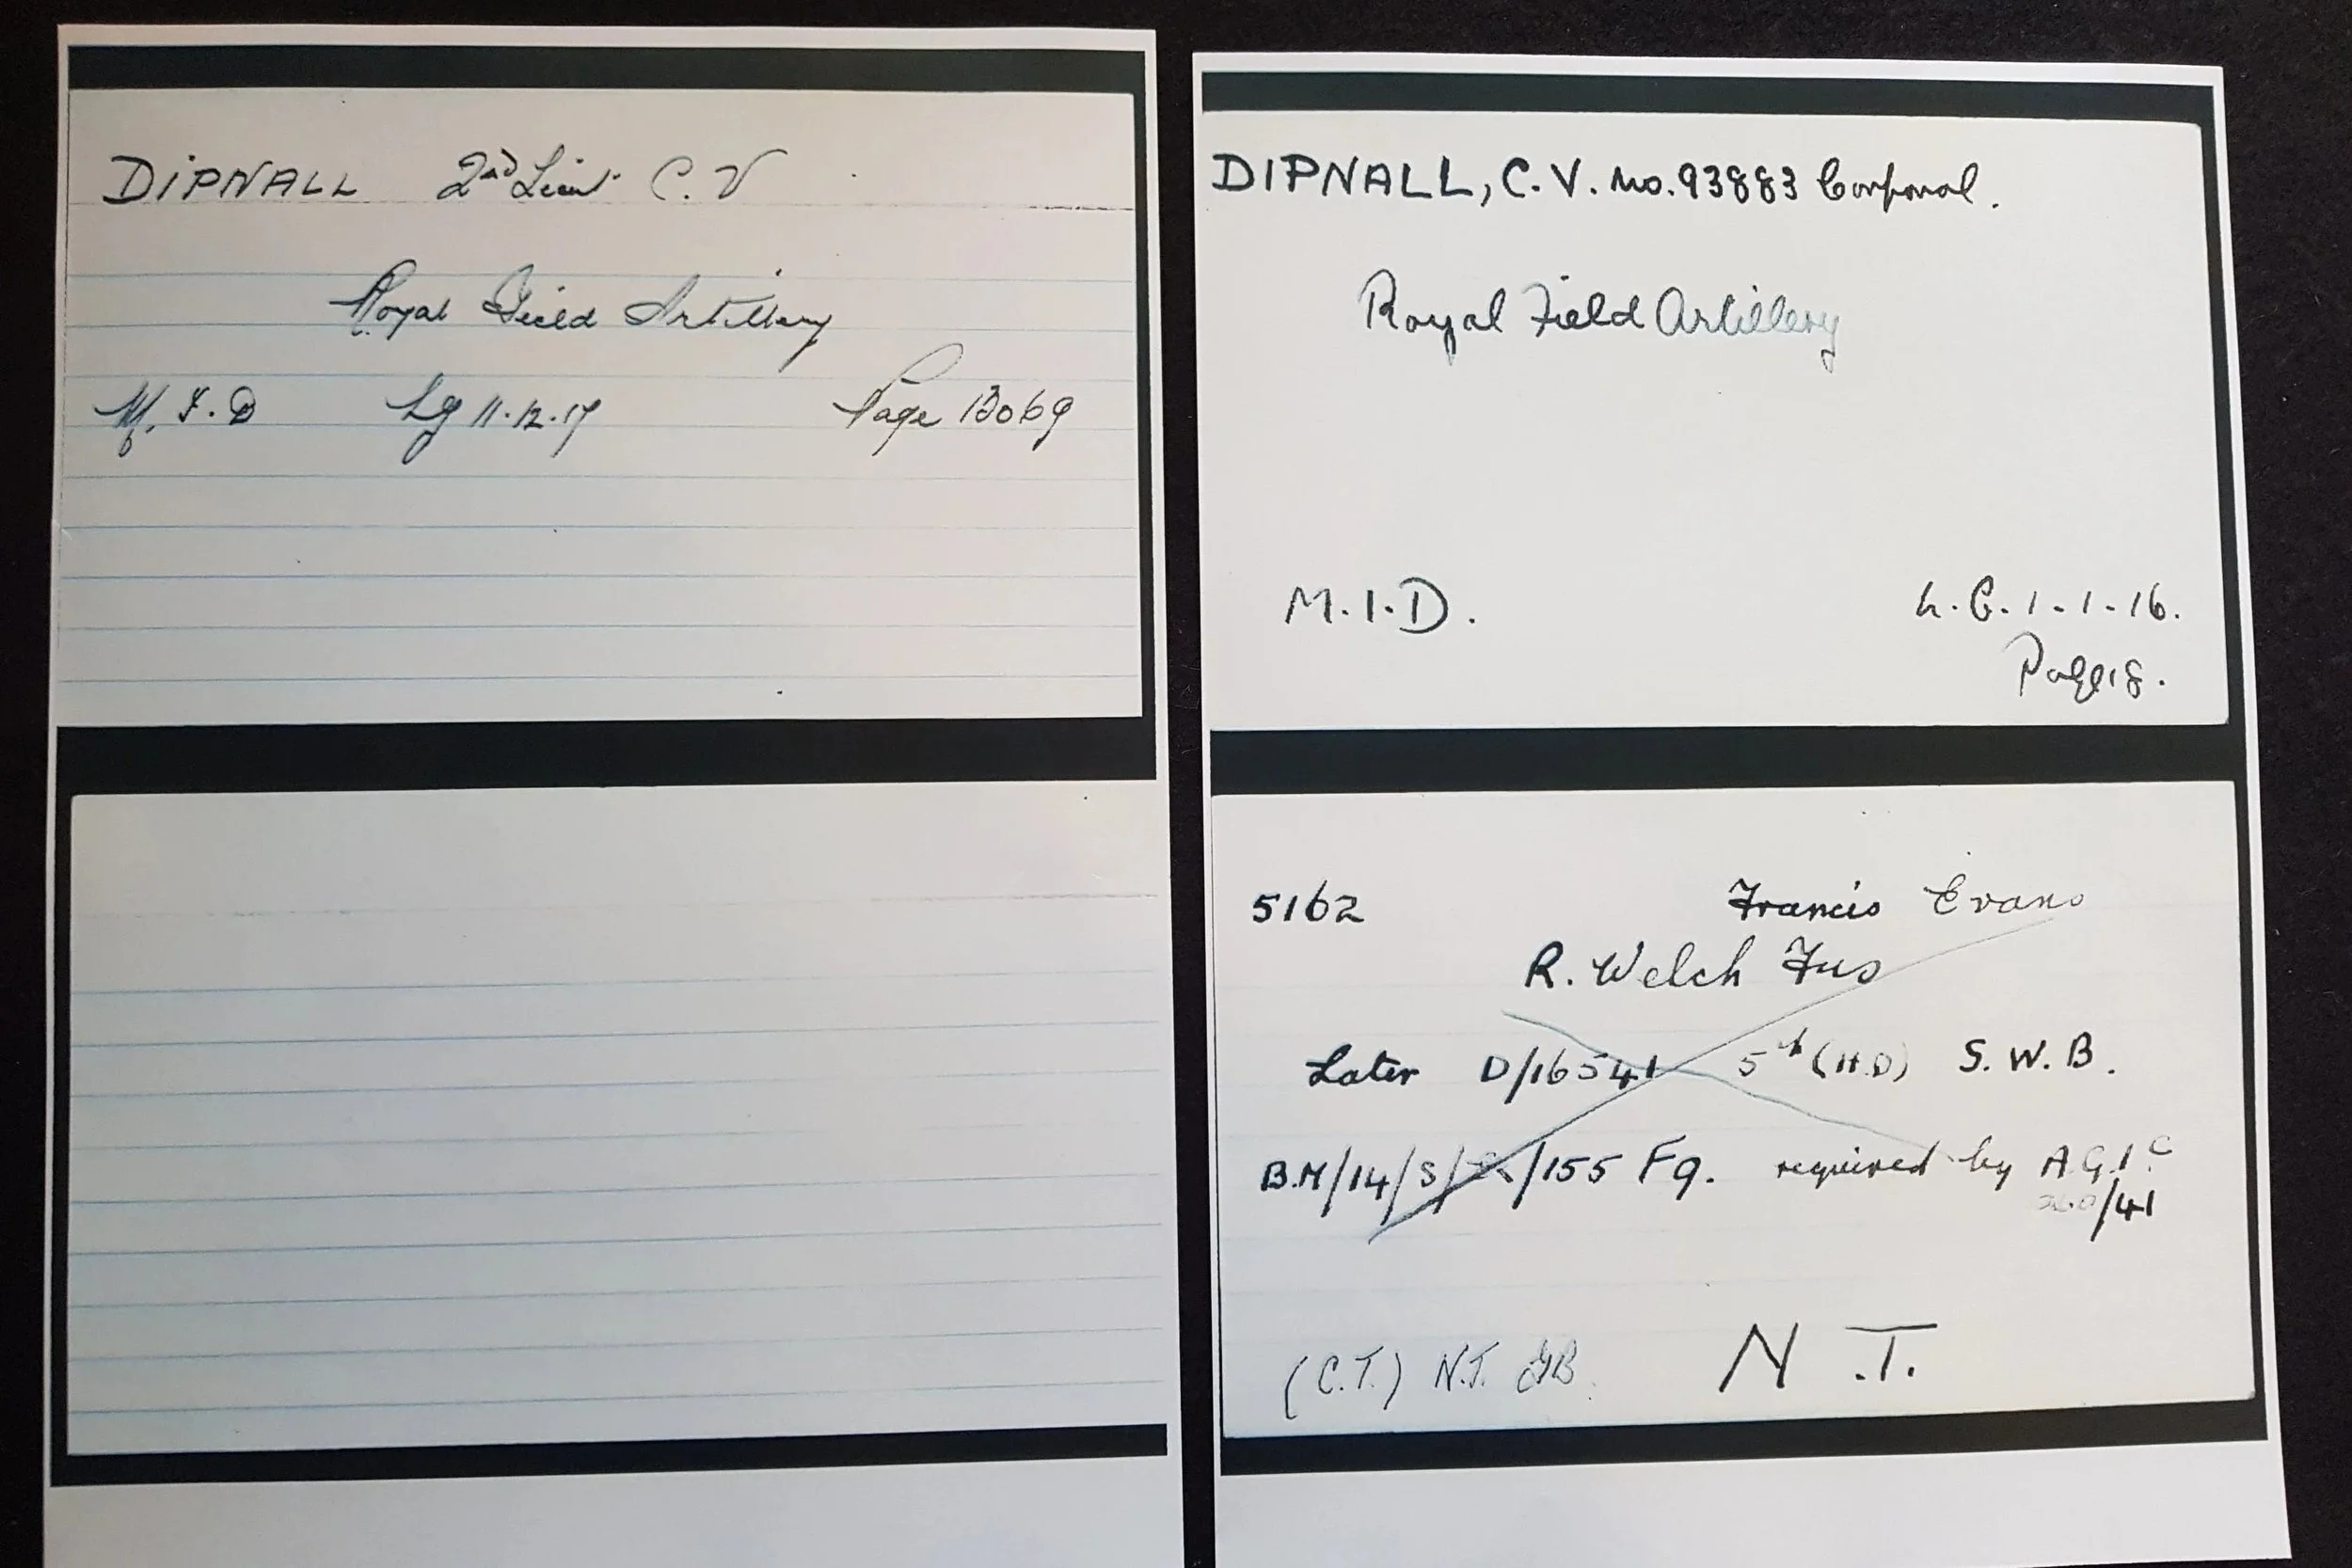 DIPNALL 2nd Lieut. C.V
Royal Field Artillery
M.I.D Lg 11.12.17 Page 13069
DIPNALL, C.V. No. 93883 Corporal.
Royal Field Artillery
M.I.D. L.G. 1-1-16.
Page 18.
5162 Francis Evans
R. Welch Fus
Later D/16541 5th (H.D) S.W.B.
B.M/14/S/ /155 Fq. required by A.G.1.C
/41
(C.T.) N.T. N.T.